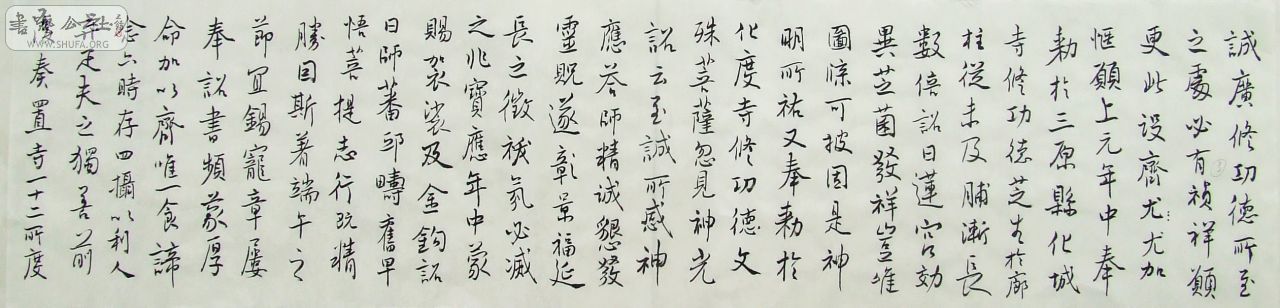 誠廣修功德所至
之處必有禎祥願
更此设齋尤尤加
惬願上元年中奉
勅於三原縣化城
寺修功德芝生於廊
柱從未及脯漸長
數倍詔曰蓮宫効
異芝菌發祥豈唯
圖牒可披固是神
明所祐又奉勅於
化度寺修功德文
殊菩薩忽見神光
詔云至誠所感神
應荅師精诚懇發
靈貺遂彰景福延
長之徵祲氛必滅
之兆寶應年中蒙
賜袈裟及金鉤詔
曰師蕃邸疇舊早
悟菩提志行既精
勝因斯著端午之
節宜錫寵章屢
奉詔書頻蒙厚
命加以齋唯一食諦
念六時存四攝以利人
弃匹夫之獨善前
後奏置寺一十二所度
書法公社
www.SHUFA.ORG